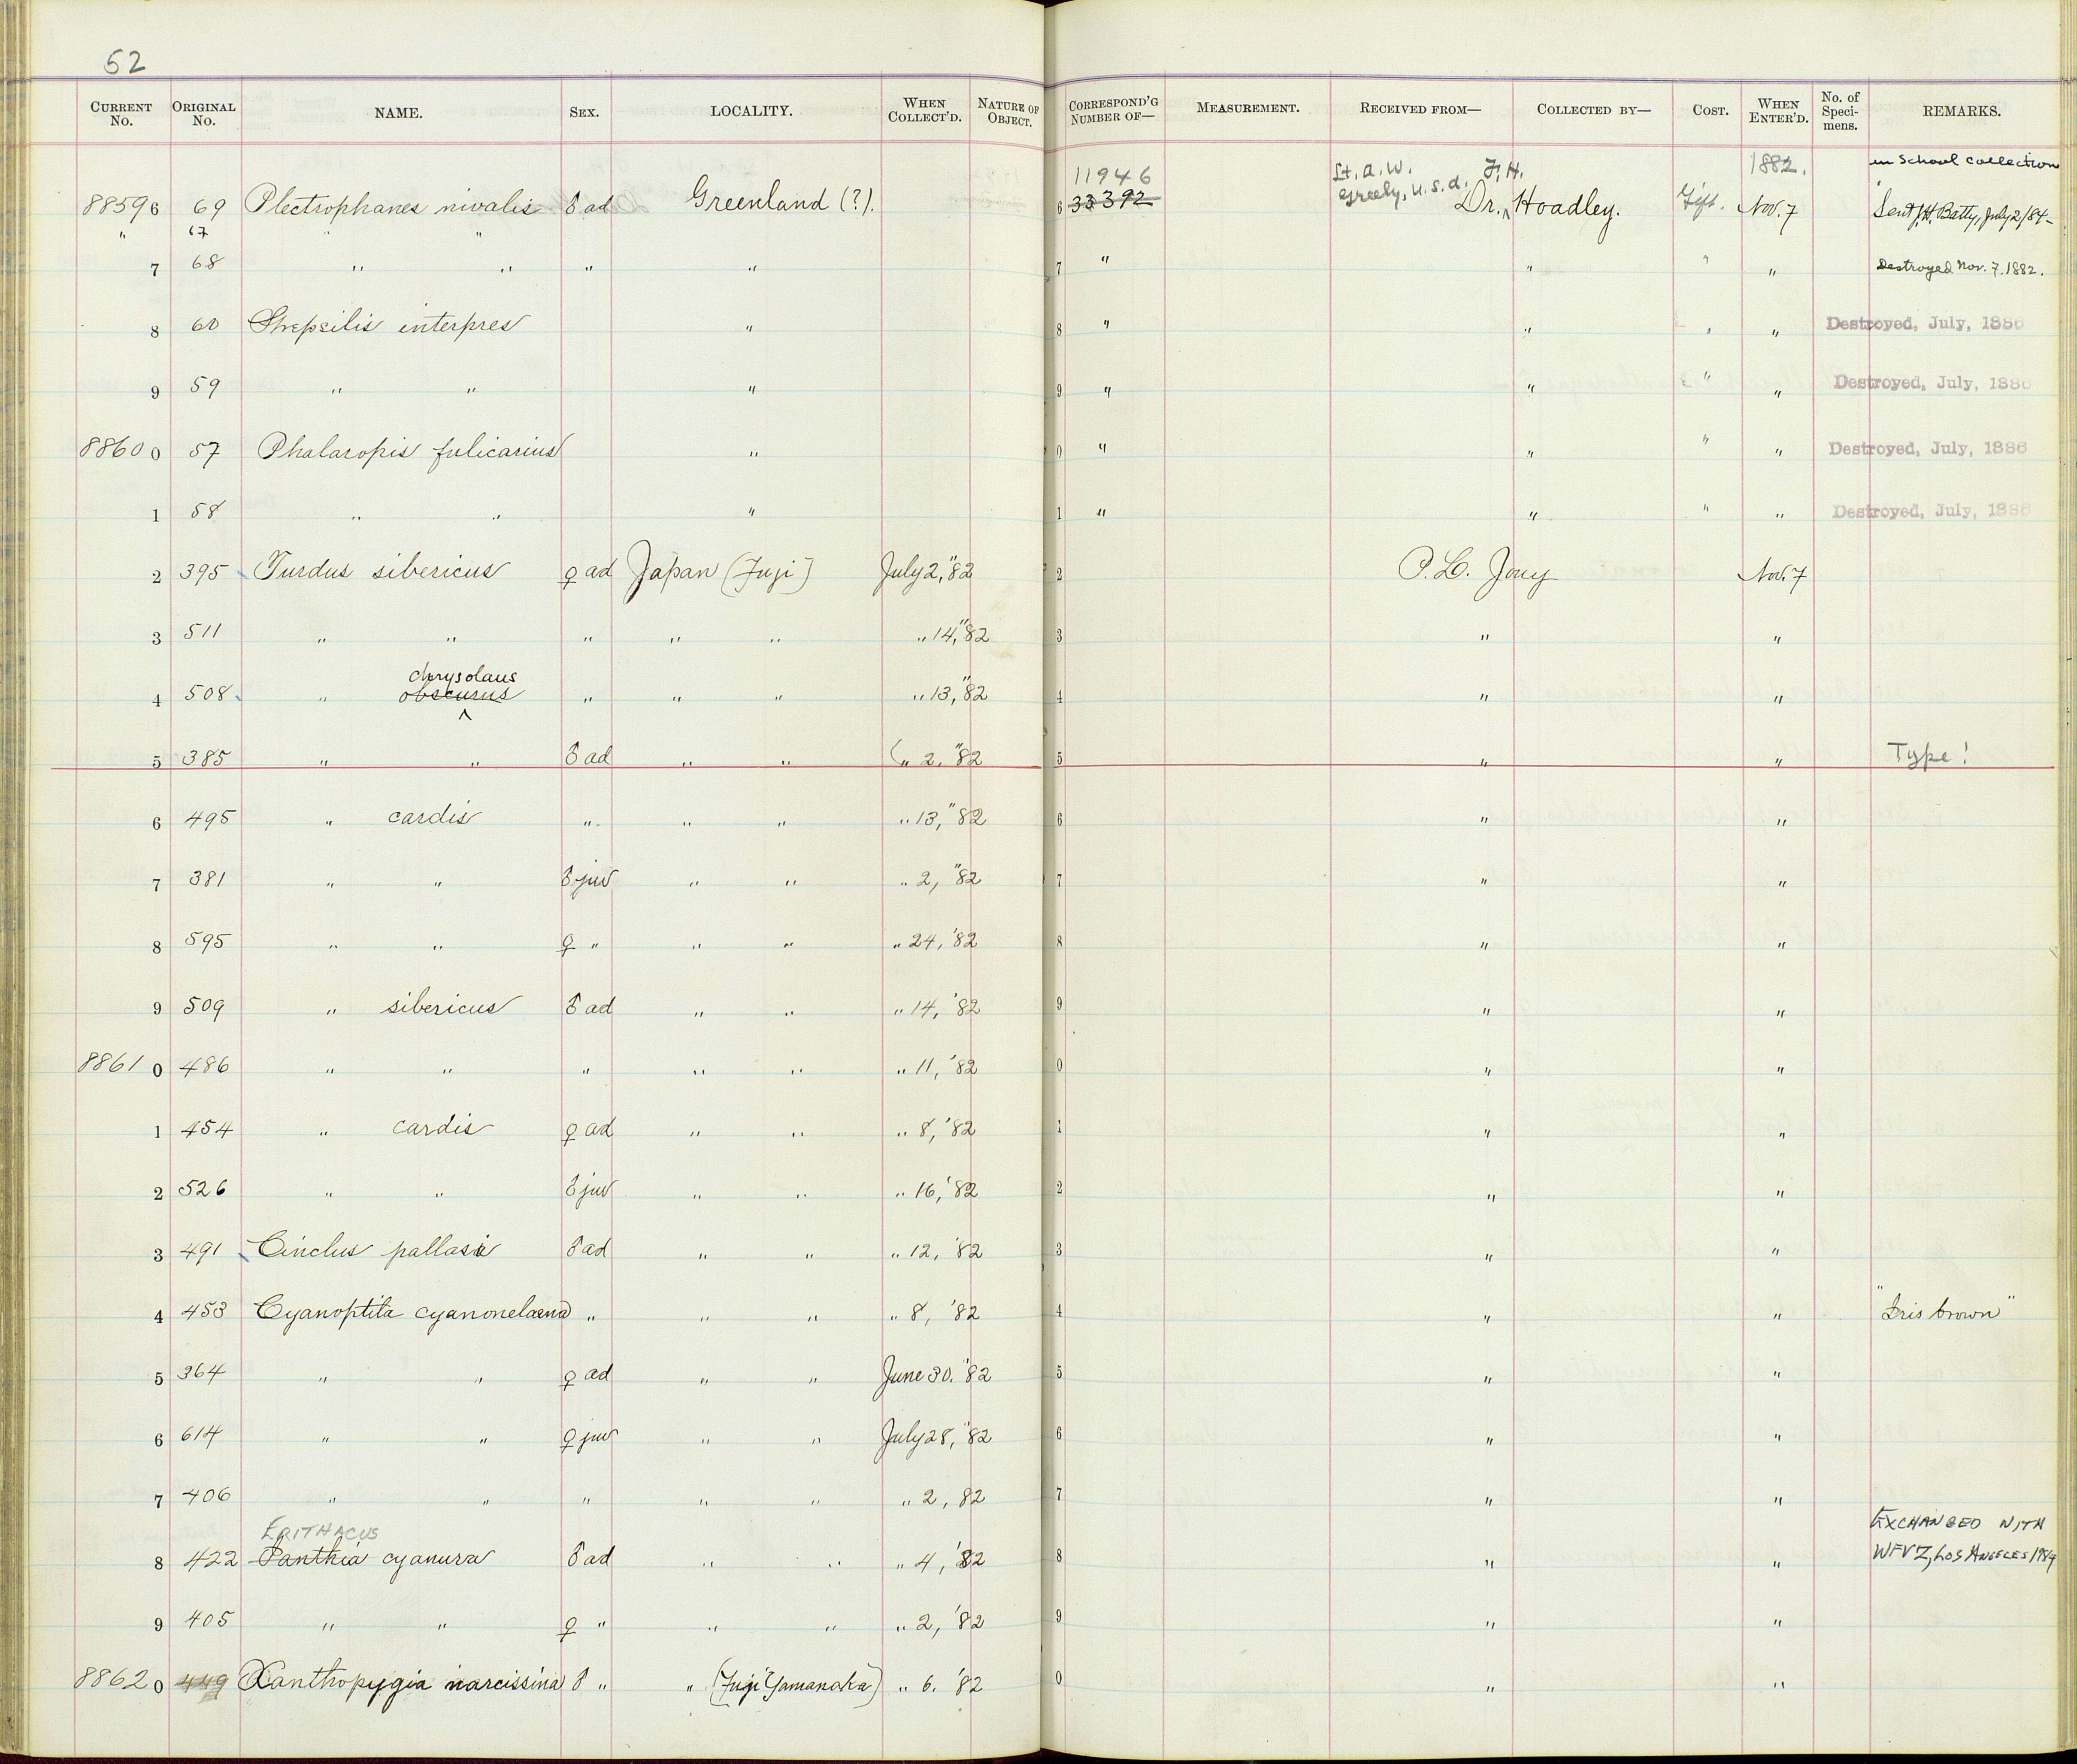 52
CURRENT No. ORIGINAL No. NAME. SEX. LOCALITY. WHEN COLLECT'D. NATURE OF OBJECT. CORRESPOND'G NUMBER OF— MEASUREMENT. RECEIVED FROM— COLLECTED BY— COST. WHEN ENTER'D. No. of Specimens. REMARKS.
11946 Lt. A. W. Greely, U.S.A. F. H. 1882. in School collection
88596 69 Plectrophanes nivalis ♂ ad Greenland (?). 6 33392 Dr. Hoadley. Gift. Nov. 7 Sent J.H. Batty, July 2/84-
" 67 " "
7 68 " " " " 7 " " " " Destroyed Nov. 7. 1882.
8 60 Strepsilis interpres " 8 " " " " Destroyed, July, 1886
9 59 " " " 9 " " " " Destroyed, July, 1886
88600 57 Phalaropis fulicarius " 0 " " " " Destroyed, July, 1886
1 58 " " " 1 " " " " Destroyed, July, 1886
2 395 Turdus sibericus ♀ ad Japan (Fuji) July 2, "82 2 P. L. Jouy Nov. 7
3 511 " " " " " " 14, "82 3 " "
chrysolaus
4 508 " obscurus " " " " 13, "82 4 " "
5 385 " " ♂ ad " " " 2, "82 5 " " Type!
6 495 " cardis " " " " 13, "82 6 " "
7 381 " " ♂ juv " " " 2, "82 7 " "
8 595 " " ♀ " " " " 24, '82 8 " "
9 509 " sibericus ♂ ad " " " 14, '82 9 " "
88610 486 " " " " " " 11, '82 0 " "
1 454 " cardis ♀ ad " " " 8, '82 1 " "
2 526 " " ♂ juv " " " 16, '82 2 " "
3 491 Cinclus pallasi ♂ ad " " " 12, '82 3 " "
4 453 Cyanoptila cyanomelaena " " " " 8, '82 4 " " "Iris brown"
5 364 " " ♀ ad " " June 30. '82 5 " "
6 614 " " ♀ juv " " July 28, "82 6 " "
7 406 " " " " " " 2, 82 7 " "
ERITHACUS EXCHANGED WITH
8 422 Ianthia cyanura ♂ ad " " " 4, '82 8 " " WFVZ, LOS ANGELES 1984
9 405 " " ♀ " " " " 2, '82 9 " "
88620 449 Xanthopygia narcissina ♂ " " (Fuji Yamanaka) " 6. '82 0 " "